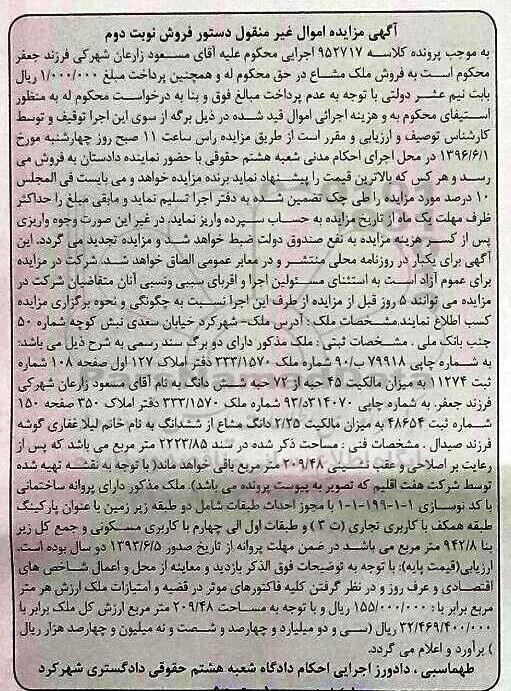 آگهی مزایده اموال غیر منقول دستور فروش نوبت دوم
به موجب پرونده کلاسه ۹۵۲۷۱۷ اجرایی محکوم علیه آقای مسعود زارعان شهرکی فرزند جعفر
محکوم است به فروش ملک مشاع در حق محکوم له و همچنین پرداخت مبلغ ۱/۰۰۰/۰۰۰ ریال
بابت نیم عشر دولتی با توجه به عدم پرداخت مبالغ فوق و بنا به درخواست محکوم له به منظور
استیفای محکوم به و هزینه اجرائی اموال قید شده در ذیل برگه از سوی این اجرا توقیف و توسط
کارشناس توصیف و ارزیابی و مقرر است از طریق مزایده راس ساعت ۱۱ صبح روز چهارشنبه مورخ
۱۳۹۶/۶/۱ در محل اجرای احکام مدنی شعبه هشتم حقوقی با حضور نماینده دادستان به فروش می
رسد و هر کس که بالاترین قیمت را پیشنهاد نماید برنده مزایده خواهد و می بایست فی المجلس
۱۰ درصد مورد مزایده را طی چک تضمین شده به دفتر اجرا تسلیم نماید و مابقی مبلغ را حداکثر
ظرف مهلت یک ماه از تاریخ مزایده به حساب سپرده واریز نماید. در غیر این صورت وجوه واریزی
پس از کسر هزینه مزایده به نفع صندوق دولت ضبط خواهد شد و مزایده تجدید می گردد. این
آگهی برای یکبار در روزنامه محلی منتشر و در معابر عمومی الصاق خواهد شد. شرکت در مزایده
برای عموم آزاد است به استثنای مسئولین اجرا و اقربای سببی ونسبی آنان متقاضیان شرکت در
مزایده می توانند ۵ روز قبل از مزایده از طرف این اجرا نسبت به چگونگی و نحوه برگزاری مزایده
کسب اطلاع نمایند.مشخصات ملک : آدرس ملک- شهرکرد خیابان سعدی نبش کوچه شماره ۵۰
جنب بانک ملی . مشخصات ثبتی : ملک مذکور دارای دو برگ سند رسمی به شرح ذیل می باشد:
به شماره چاپی ۷۹۹۱۸ ب/۹۰ شماره ملک ۳۳۳/۱۵۷۰ دفتر املاک ۱۲۷ اول صفحه ۱۰۸ شماره
ثبت ۱۱۲۷۴ به میزان مالکیت ۴۵ حبه از ۷۲ حبه شش دانگ به نام آقای مسعود زارعان شهرکی
فرزند جعفر. به شماره چاپی ۳۱۴۰۷۰د/۹۳ شماره ملک ۳۳۳/۱۵۷۰ دفتر املاک ۳۵۰ صفحه ۱۵۰
شماره ثبت ۴۸۶۵۴ به میزان مالکیت ۲/۲۵ دانگ مشاع از ششدانگ به نام خانم لیلا غفاری گوشه
فرزند صیدال . مشخصات فنی : مساحت ذکر شده در سند ۲۲۲۳/۸۵ متر مربع می باشد که پس از
رعایت بر اصلاحی و عقب نشینی ۲۰۹/۴۸ متر مربع باقی خواهد ماند( با توجه به نقشه تهیه شده
توسط شرکت هفت اقلیم که تصویر به پیوست پرونده می باشد). ملک مذکور دارای پروانه ساختمانی
با کد نوسازی ۱-۱-۱۹۹-۱-۱ با مجوز احداث طبقات شامل دو طبقه زیر زمین با عنوان پارکینگ
طبقه همکف با کاربری تجاری (ت ۳ ) و طبقات اول الی چهارم با کاربری مسکونی و جمع کل زیر
بنا ۹۴۲/۸ متر مربع می باشد در ضمن مهلت پروانه از تاریخ صدور ۱۳۹۳/۶/۵ دو سال بوده است.
ارزیابی(قیمت پایه): با توجه به توضیحات فوق الذکر بازدید و معاینه از محل و اعمال شاخص های
اقتصادی و عرف روز و در نظر گرفتن کلیه فاکتورهای موثر در قضیه و امتیازات ملک ارزش هر متر
مربع برابر با : ۱۵۵/۰۰۰/۰۰۰ ریال و با توجه به مساحت ۲۰۹/۴۸ متر مربع ارزش کل ملک برابر با
۳۲/۴۶۹/۴۰۰/۰۰۰ ریال (سی و دو میلیارد و چهارصد و شصت و نه میلیون و چهارصد هزار ریال
) برآورد و اعلام می گردد.
طهماسبی ، دادورز اجرایی احکام دادگاه شعبه هشتم حقوقی دادگستری شهرکرد